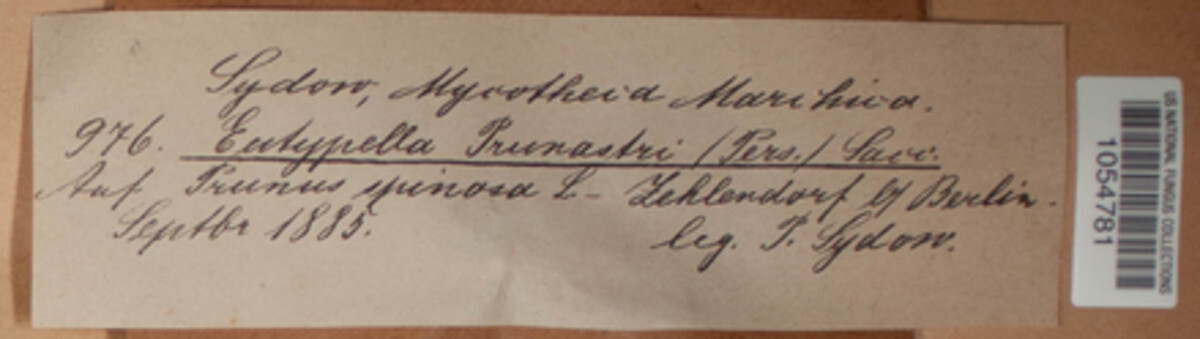 Sydow, Mycotheca Marchica.
976. Eutypella Prunastri (Pers.) Sacc.
Auf Prunus spinosa L - Zehlendorf b/ Berlin.
Septbr 1885.
leg. P. Sydow.
US NATIONAL FUNGUS COLLECTIONS
1054781